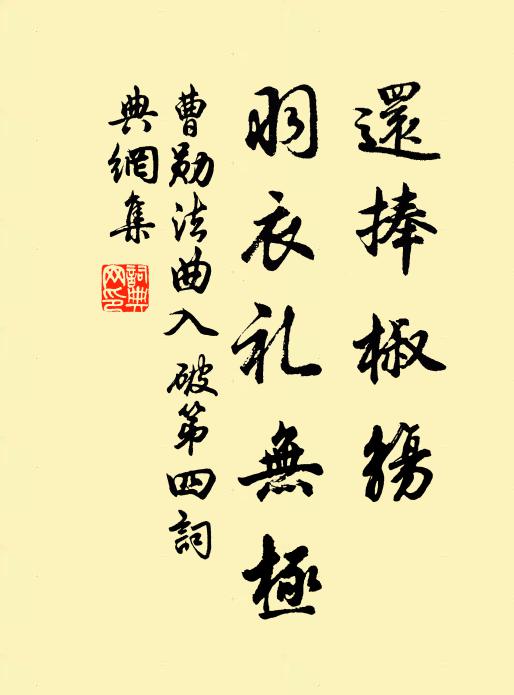 還捧椒觴
羽衣礼無極
曹勛法曲入破第四詞
典網集
詞典网印